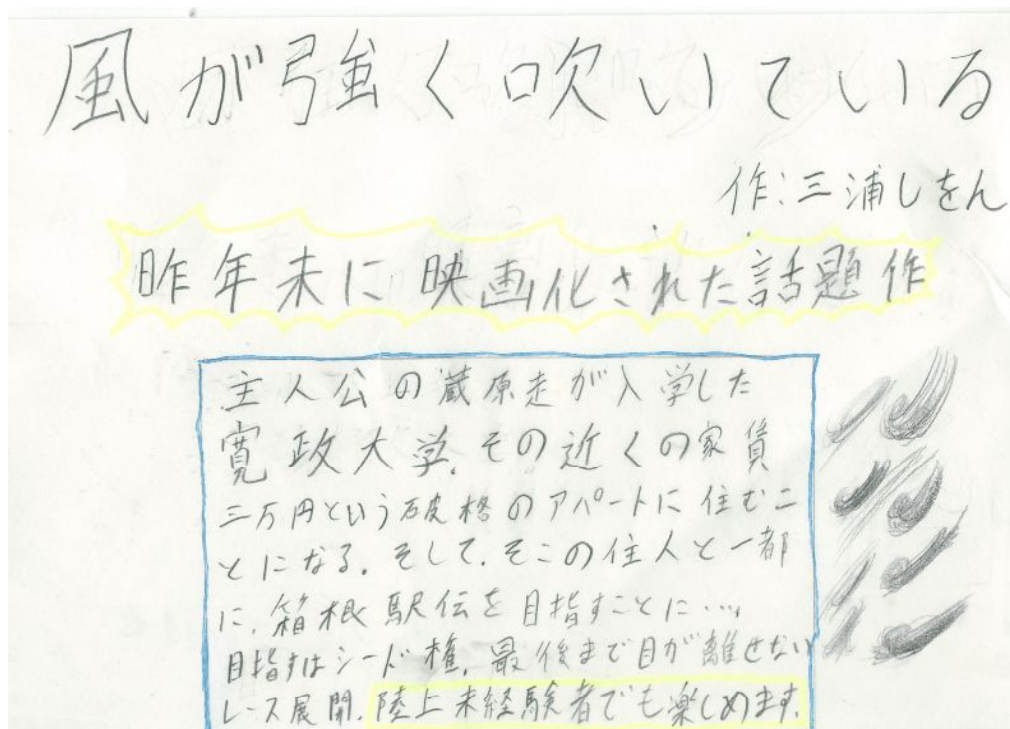 風が強く吹いている
作:三浦しをん
昨年末に映画化された話題作
主人公の蔵原走が入学した
寛政大学、その近くの家賃
三万円という破格のアパートに住むこ
とになる。そして、そこの住人と一都
に、箱根駅伝を目指すことに…、
目指すはシード権、最後まで目が離せない
レース展開、陸上未経験者でも楽しめます。